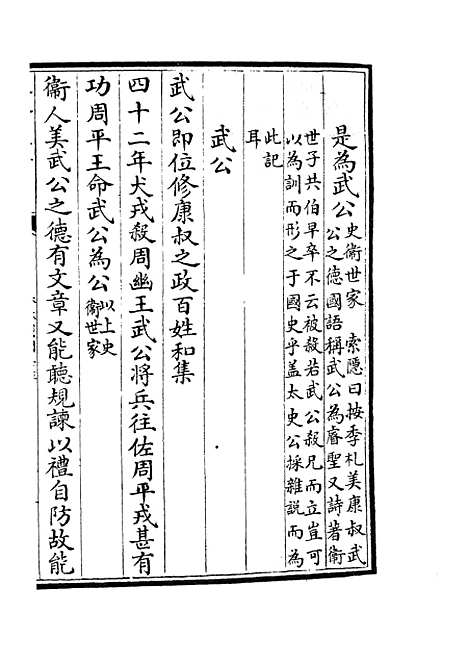 是為武公史衛世家　索隱曰按季札美康叔武
公之德國語稱武公為睿聖又詩著衛
世子共伯早卒不云被殺若武公殺兄而立豈可
以為訓而形之于國史乎盖太史公採雜說而為
此記
耳
武公
武公即位修康叔之政百姓和集
四十二年犬戎殺周幽王武公將兵往佐周平戎甚有
功周平王命武公為公以上史
衛世家
衞人美武公之德有文章又能聽規諫以禮自防故能